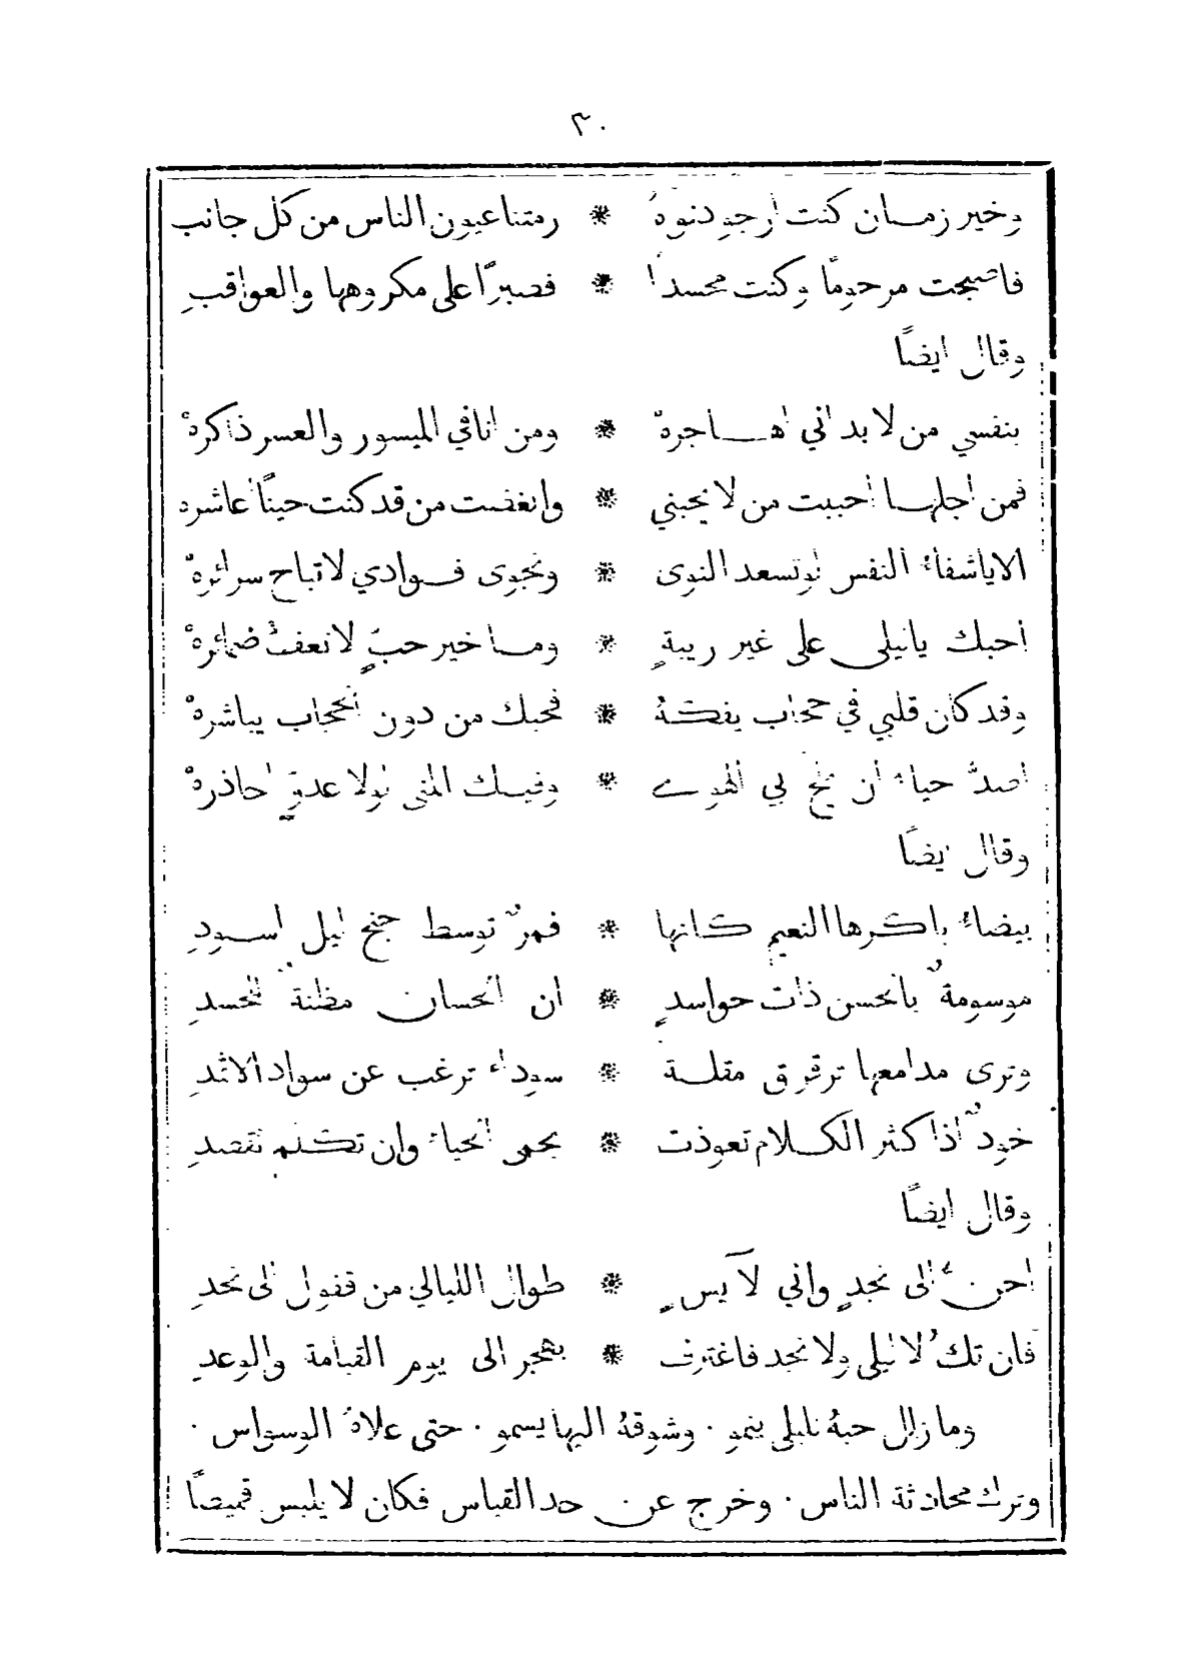 ٣٠
وخير زمان كنت أرجو دنوهُ * رمتنا عيون الناس من كل جانب
فاصبحت مرحومًا وكنت محسدًا * فصبرًا على مكروهها والعواقبِ
وقال ايضًا
بنفسي من لا بد اني اهاجرهْ * ومن انا في الميسور والعسر ذاكرهْ
فمن اجلها احببت من لا يحبني * وابغضت من قد كنت حينًا اعاشره
الا ياشفاءَ النفس لو تسعد النوى * ونجوى فوادي لا تباح سرائرهْ
احبك يا ليلى على غير ريبةٍ * وما خير حبٍّ لا تعفُّ ضمائرهْ
وقد كان قلبي في حجاب يكنّهُ * فحبك من دون الحجاب يباشرهْ
اصدُّ حياءً ان يلج بي الهوى * وفيك المنى لولا عدوٍّ احاذرهْ
وقال ايضًا
بيضاءُ باكرها النعيم كانها * قمرٌ توسط جنح ليل اسودِ
موسومةٌ بالحسن ذات حواسدٍ * ان الحسان مظنةٌ للحسدِ
وترى مدامعها ترقرق مقلة * سوداء ترغب عن سواد الاثمدِ
خودٌ اذا كثر الكلام تعوذت * بحمى الحياء وان تكلم تقصدِ
وقال ايضًا
احنُّ الى نجدٍ واني لآيسٍ * طوال الليالي من قفول الى نجدِ
فان تكُ لا ليلى ولا نجد فاعترف * بهجر الى يوم القيامة والوعدِ
وما زال حبهُ لليلى ينمو ٠ وشوقهُ اليها يسمو ٠ حتى علاهُ الوسواس ٠
وترك محادثة الناس ٠ وخرج عن حد القياس فكان لا يلبس قميصًا